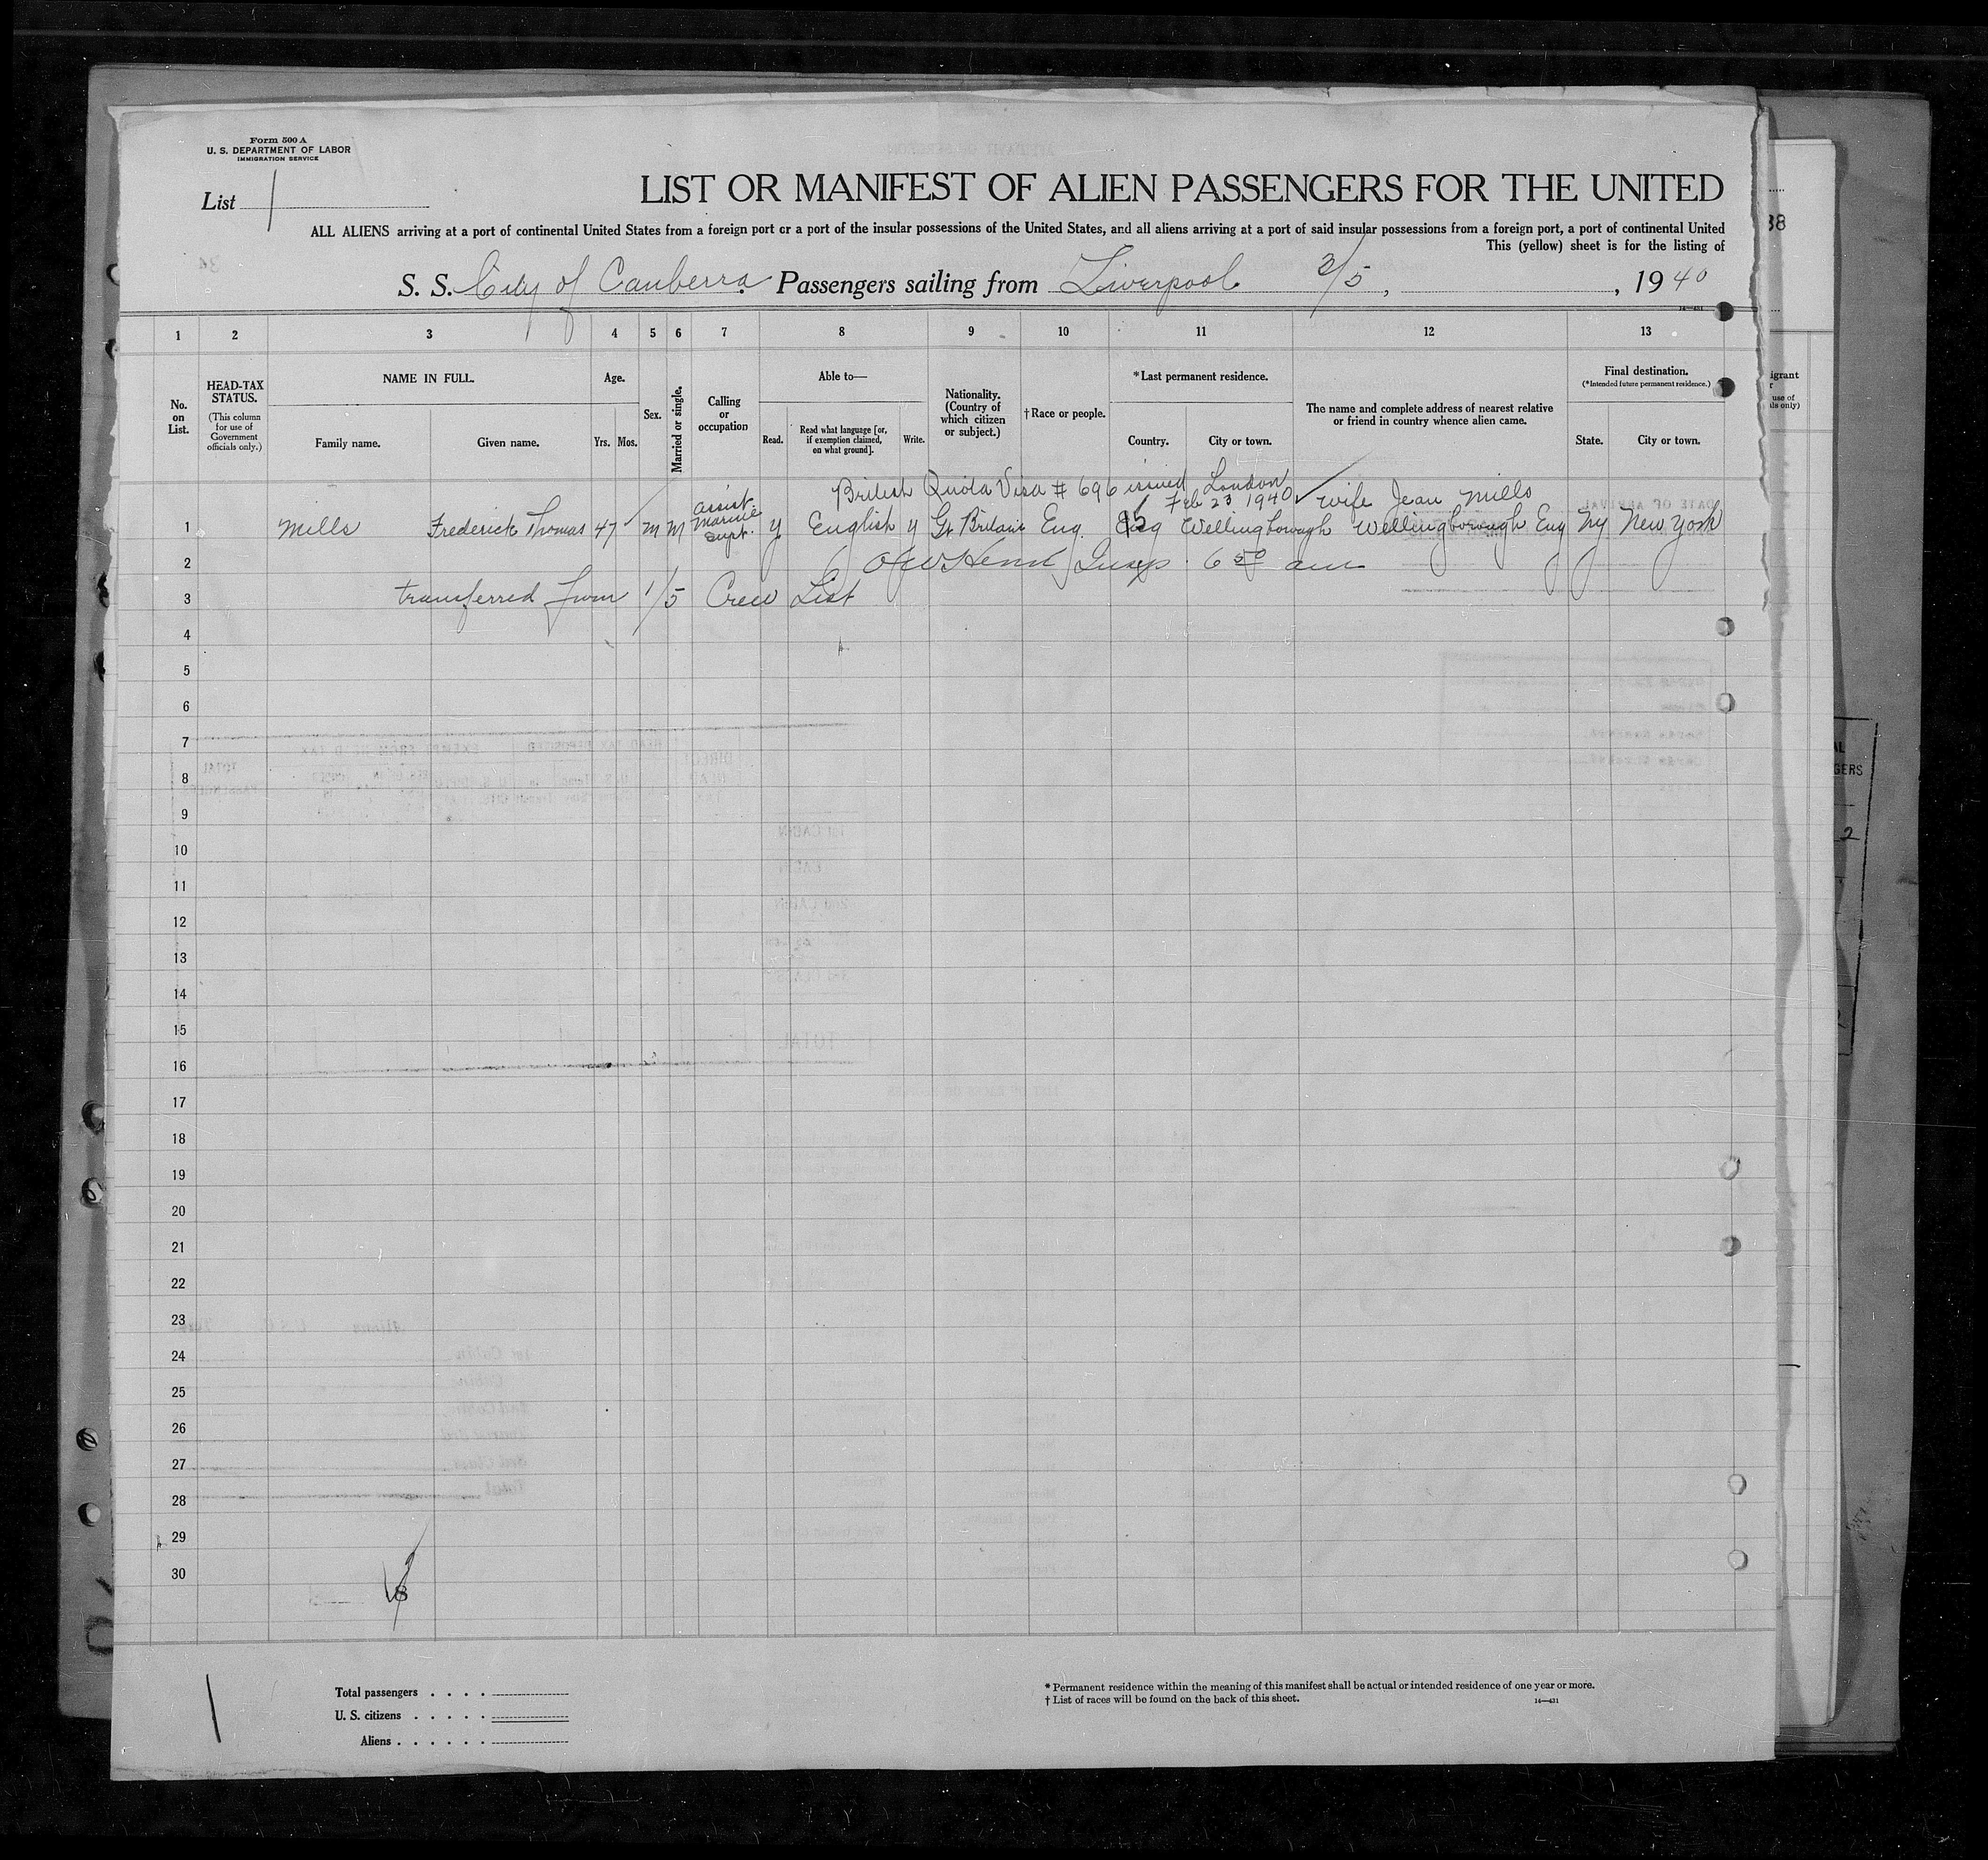 Form 500 A
U. S. DEPARTMENT OF LABOR
IMMIGRATION SERVICE
List 1
LIST OR MANIFEST OF ALIEN PASSENGERS FOR THE UNITED
ALL ALIENS arriving at a port of continental United States from a foreign port or a port of the insular possessions of the United States, and all aliens arriving at a port of said insular possessions from a foreign port, a port of continental United
This (yellow) sheet is for the listing of
S. S. City of Canberra Passengers sailing from Liverpool 3/5, , 1940
16—431
1 2 3 4 5 6 7 8 9 10 11 12 13
No. on List.
HEAD-TAX STATUS.
(This column for use of Government officials only.)
NAME IN FULL.
Family name. Given name.
Age.
Yrs. Mos.
Sex.
Married or single.
Calling or occupation
Able to—
Read. Read what language [or, if exemption claimed, on what ground]. Write.
Nationality. (Country of which citizen or subject.)
†Race or people.
*Last permanent residence.
Country. City or town.
The name and complete address of nearest relative or friend in country whence alien came.
Final destination.
(*Intended future permanent residence.)
State. City or town.
British Quota Visa # 696 issued London
Feb 23 1940
1 Mills Frederick Thomas 47 M M assist. Marine Supt. y English y Gt Britain Eng. Eng Wellingborough wife Jean Mills Wellingborough Eng Ny New York
2 Insp. 6 50 am
3 transferred from 1/5 Crew List
4
5
6
7
8
9
10
11
12
13
14
15
16
17
18
19
20
21
22
23
24
25
26
27
28
29
30
Total passengers
U. S. citizens
Aliens
* Permanent residence within the meaning of this manifest shall be actual or intended residence of one year or more.
† List of races will be found on the back of this sheet.
16—431